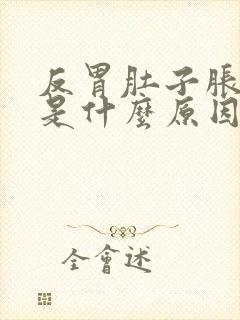 反胃肚子脹
是什麼原因
全會述